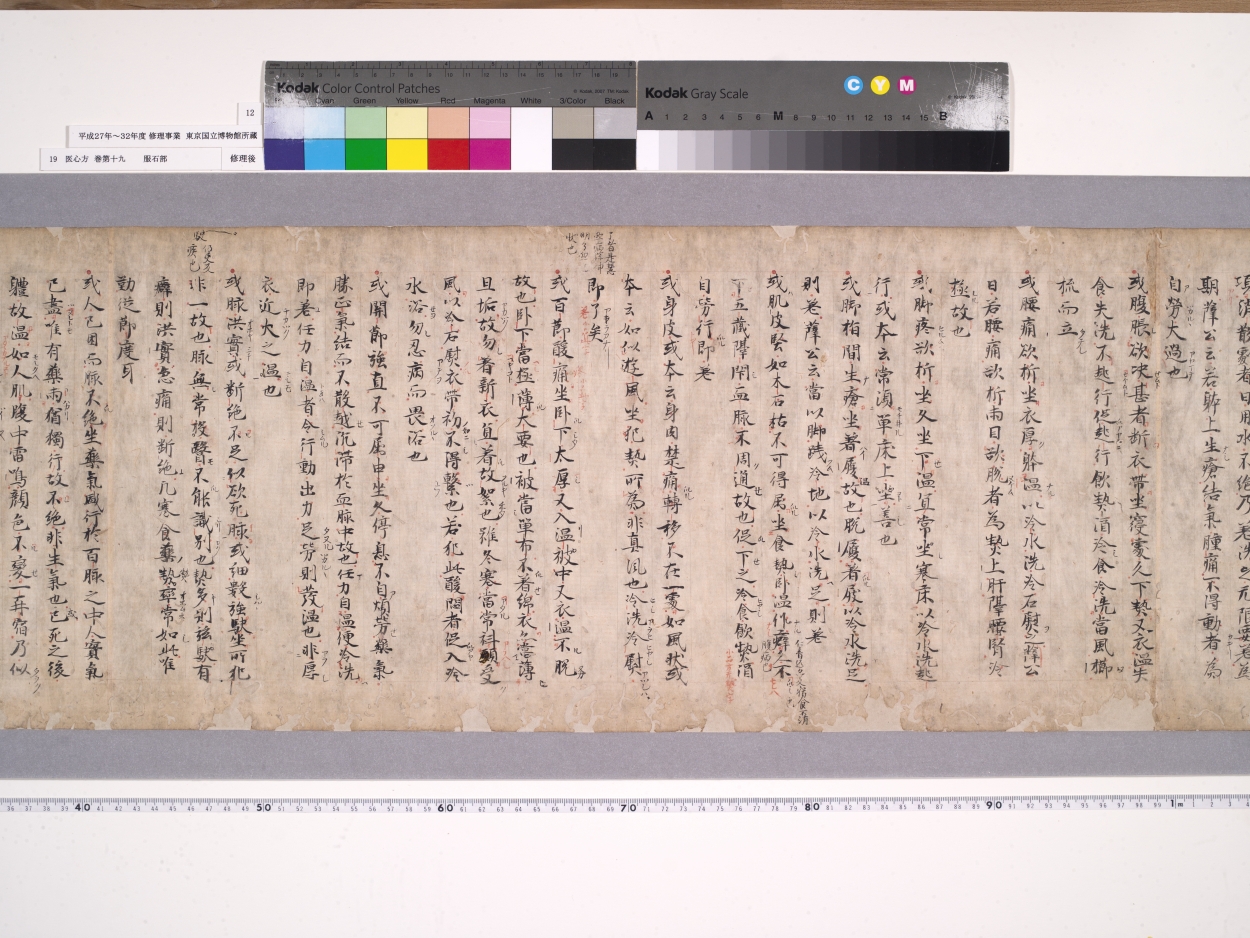 Kodak Color Control Patches
Cyan Green Yellow Red Magenta White 3/Color Black
Kodak Gray Scale
C Y M
A 1 2 3 4 5 6 M 8 9 10 11 12 13 14 15 B
12
平成27年～32年度 修理事業 東京国立博物館所蔵
19 医心方 巻第十九 服石部 修理後
期薛公云若躰上生瘡結氣腫痛不得動者為
自勞大過也
或腹脹欲決甚者斷衣帶坐寢處久下熱又衣溫失
食失洗不起行促起行飲熱酒冷食冷洗當風櫛
梳而立
或腰痛欲折坐衣厚躰溫以冷水洗冷石慰之薛公
日若腰痛欲折兩目欲脫者為熱上肝膈腰腎冷
極故也
或脚疼欲折坐久坐下溫宜常坐寒床以冷水洗起
行或本云常須單床上坐善也
或脚指間生瘡坐著履故也脫履著屐以冷水洗足
則差薛公云當以脚踐冷地以冷水洗足則差
或肌皮堅如木石枯不可得屈坐食熱卧溫作癖久不
下五藏隔閉血脉不周通故也促下之冷食飲熱酒
自勞行即差
或身皮或本云身肉楚痛轉移不在一處如風狀或
本云如似遊風坐犯熱所為非真風也冷洗冷熨
即了矣
或百節酸痛坐卧下太厚又入溫被中又衣溫不脫
故也卧下當極薄大要也被當單布不著綿衣亦當薄
且垢故勿著新衣宜著故絮也雖冬寒當常科頭受
風以冷石熨衣帶初不得繫也若犯此酸悶者促入冷
水浴勿忍病而畏浴也
或關節強直不可屈申坐久停息不自煩勞藥氣
勝正氣結而不散越沉滯於血脉中故也任力自溫便冷洗
即差任力自溫者令行動出力足勞則發溫也非厚
衣近火之溫也
或脉洪實或斷絕不足似欲死脉或細數強駃坐所犯
非一故也脉無常投醫不能識別也熱多則弦駃有
癖則洪實急痛則斷絕凡寒食藥熱率常如此唯
勤從節度耳
或人已困而脉不絕坐藥氣盛行於百脉之中人實氣
已盡唯有藥兩猶獨行故不絕非生氣也已死之後
體故溫如人肌腹中雷鳴顏色不變一再宿乃似
40 50 60 70 80 90 1m